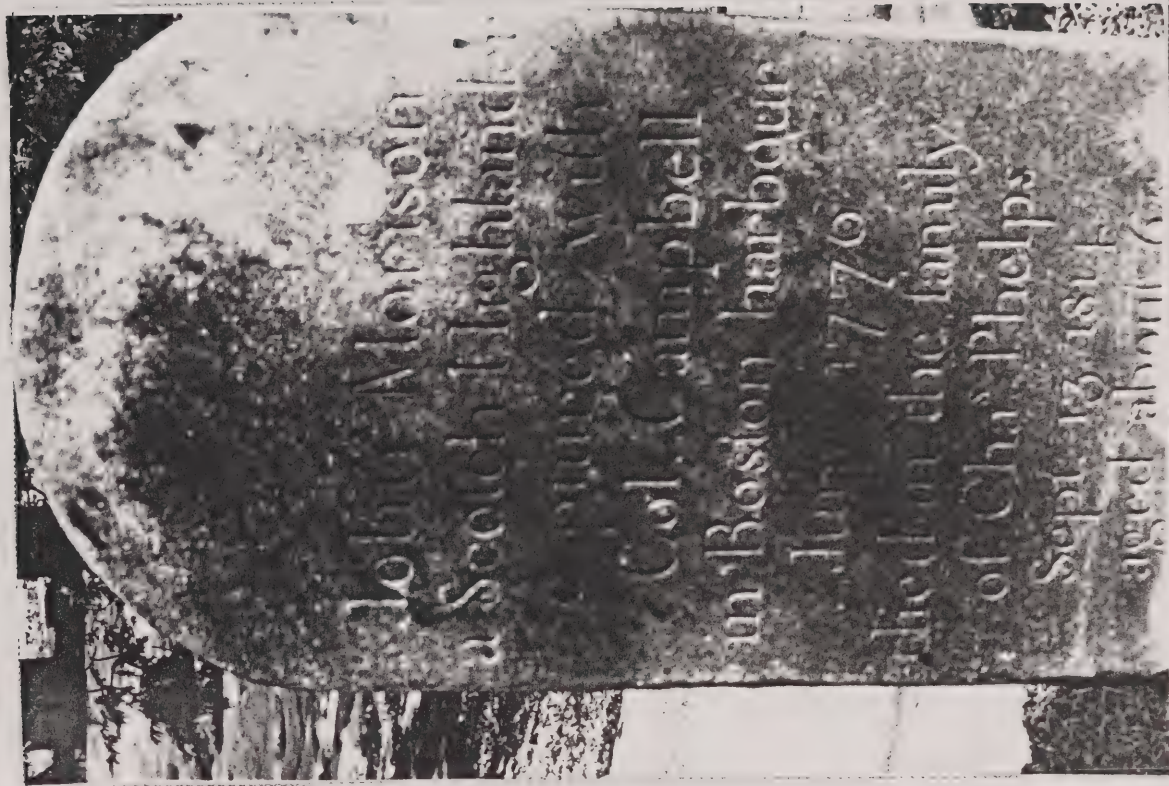 John Morrison
a Scotch Highlander
captured with
Col. Campbell
in Boston harbour
June 1776
died in the family
of Chaˢ Phelps
Sept 13
aged about